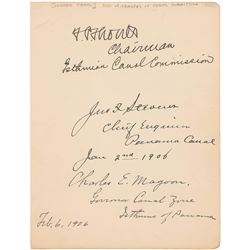 T. P. Shonts
Chairman
Isthmian Canal Commission
Jno F Stevens
Chief Engineer
Panama Canal
Jan 2nd 1906
Charles E. Magoon.
Governor Canal Zone
Isthmus of Panama
Feb. 6, 1906